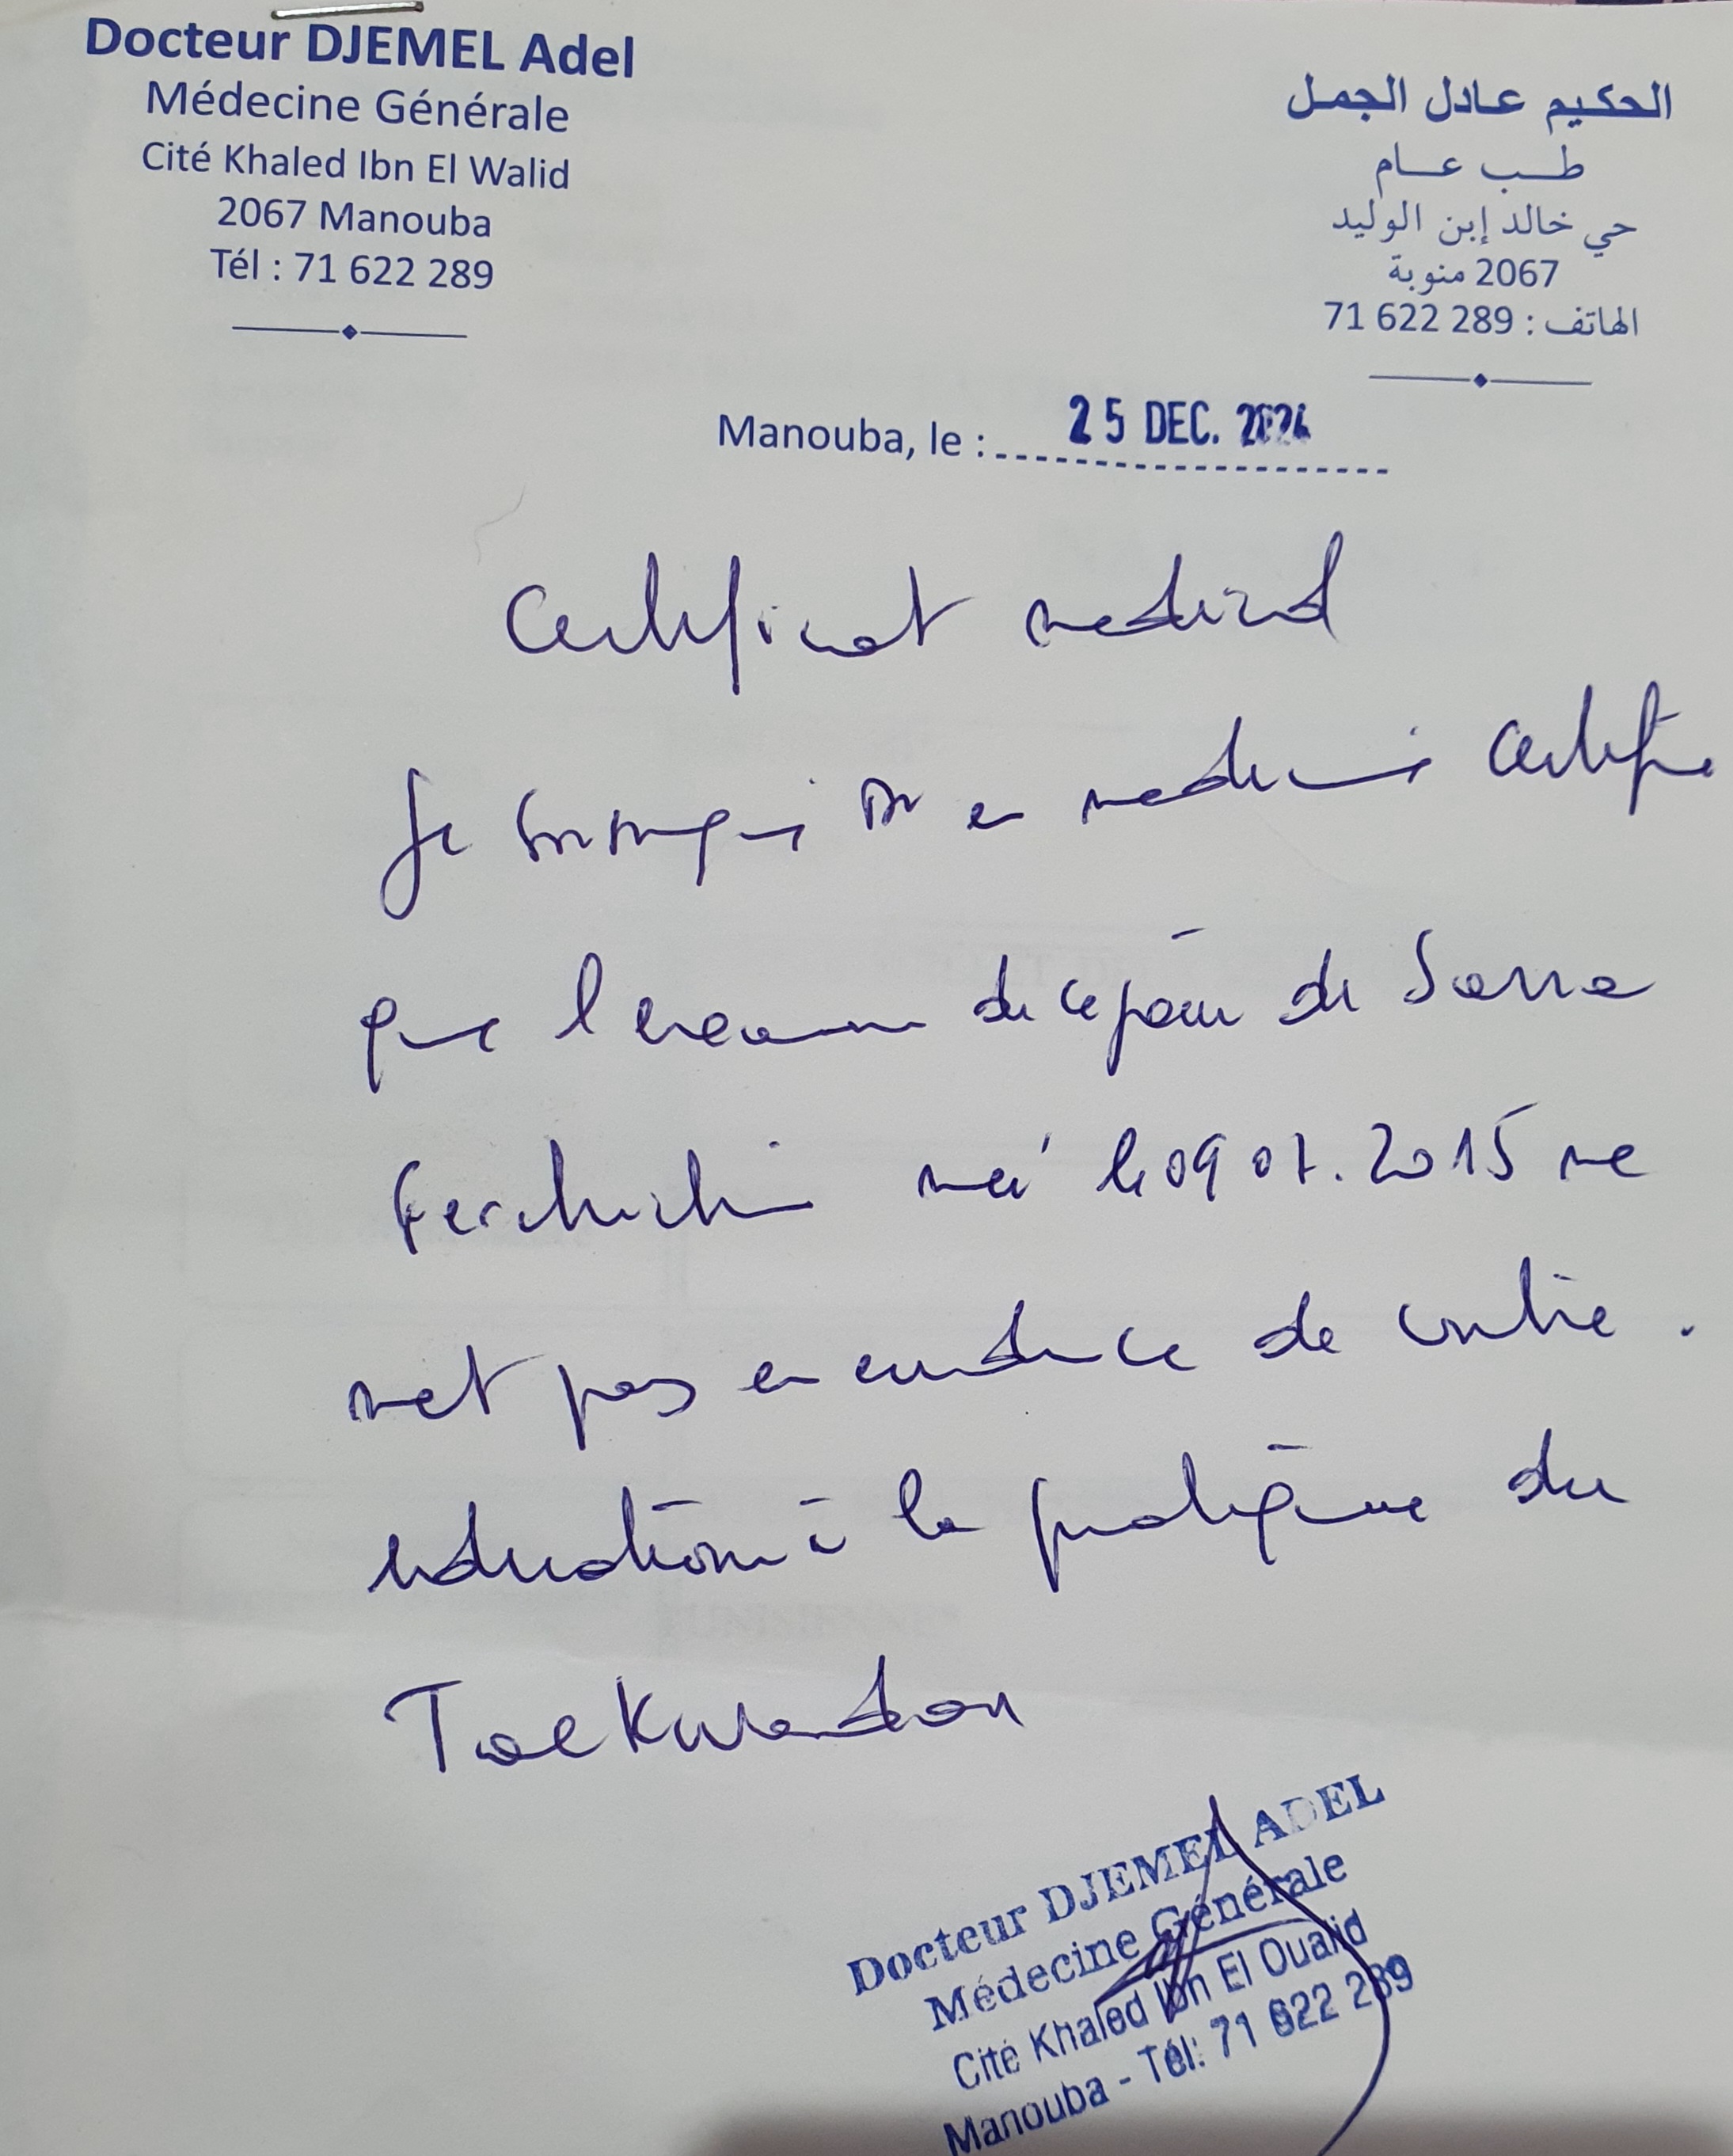 Docteur DJEMEL Adel
Médecine Générale
Cité Khaled Ibn El Walid
2067 Manouba
Tél : 71 622 289
الحكيم عادل الجمل
طب عام
حي خالد إبن الوليد
2067 منوبة
الهاتف : 71 622 289
Manouba, le : 25 DEC. 2024
Certificat medical
Je soussigné Dr en medecine certifie
que l'examen de ce jour de Sarra
Ferchichi né le 09 07. 2015 ne
met pas en evidence de contre.
indication à la pratique du
Taekwondon
Docteur DJEMEL ADEL
Médecine Générale
Cité Khaled Ibn El Oualid
Manouba - Tél: 71 622 289